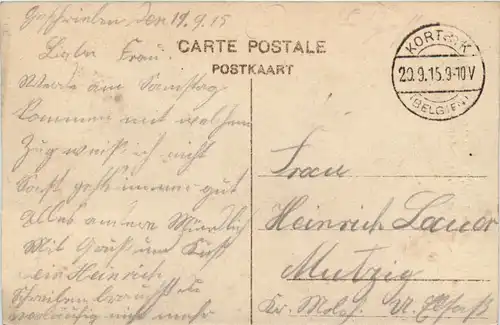 Geschrieben den 19.9.15
CARTE POSTALE
POSTKAART
KORTRIJK
20.9.15.9-10V
(BELGIEN)
Liebe Frau.
Werde am Samstag
kommen mit welchem
Zug weiß ich nicht
Sonst geht immer gut
alles andere Mündlich
Mit Gruß und Kuß
dein Heinrich
Schreiben brauchst du
vorläufig nicht mehr
Frau
Heinrich Lauer
Mutzig
Kr. Molsh. U. Elsaß